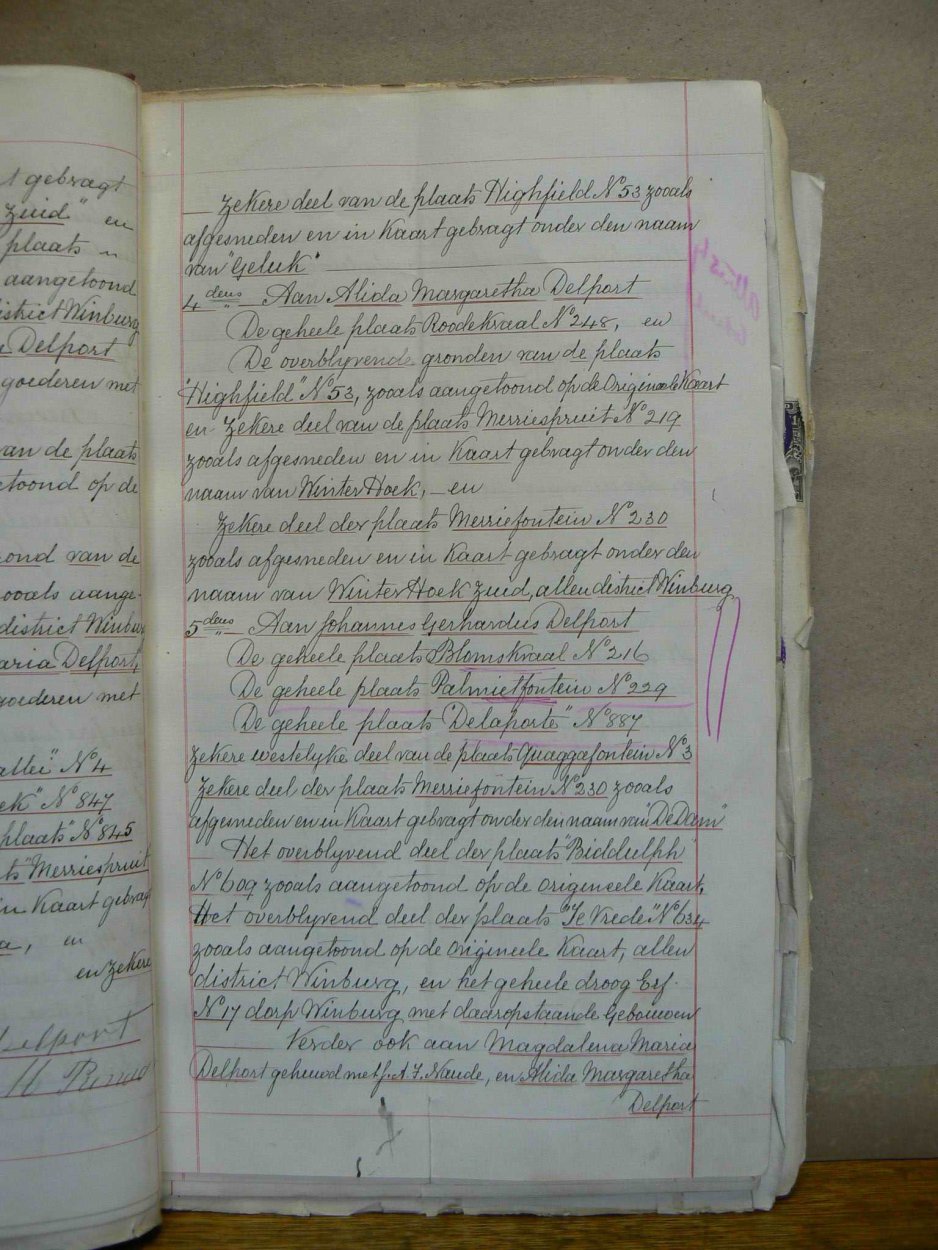 t gebragt
Zuid" en
plaats
aangetoond
istrict Winburg
a Delport
goederen met
an de plaats
etoond op de
rond van de
ooals aange-
district Winburg
aria Delport,
goederen met
allei" No 4
ek" No 847
plaats" No 845
ts "Merriespruit
in Kaart gebrag
a, en
en zekere
Delport
Zekere deel van de plaats Highfield No 53 zooals
afgesneden en in Kaart gebragt onder den naam
van "Geluk"
4dens Aan Alida Margaretha Delport
De geheele plaats Roodekraal No 248, en
De overblyvende gronden van de plaats
"Highfield" No 53, zooals aangetoond op de Origineele Kaart
en Zekere deel van de plaats Merriespruit No 219
zooals afgesneden en in Kaart gebragt onder den
naam van Winter Hoek, – en
Zekere deel der plaats Merriefontein No 230
zooals afgesneden en in Kaart gebragt onder den
naam van Winter Hoek Zuid, allen district Winburg
5dens Aan Johannes Gerhardus Delport
De geheele plaats Blomskraal No 216
De geheele plaats Palmietfontein No 229
De geheele plaats "Delaporte" No 887
Zekere westelyke deel van de plaats Quaggafontein No 3
Zekere deel der plaats Merriefontein No 230 zooals
afgesneden en in Kaart gebragt onder den naam van "De Dam"
Het overblyvend deel der plaats "Biddulph"
No 609 zooals aangetoond op de origineele Kaart,
Het overblyvend deel der plaats "Te Vrede" No 634
zooals aangetoond op de Origineele Kaart, allen
district Winburg, en het geheele droog Erf
No 17 dorp Winburg met daaropstaande Gebouwen
Verder ook aan Magdalena Maria
Delport gehuwd met J. A. J. Naude, en Alida Margaretha
Delport